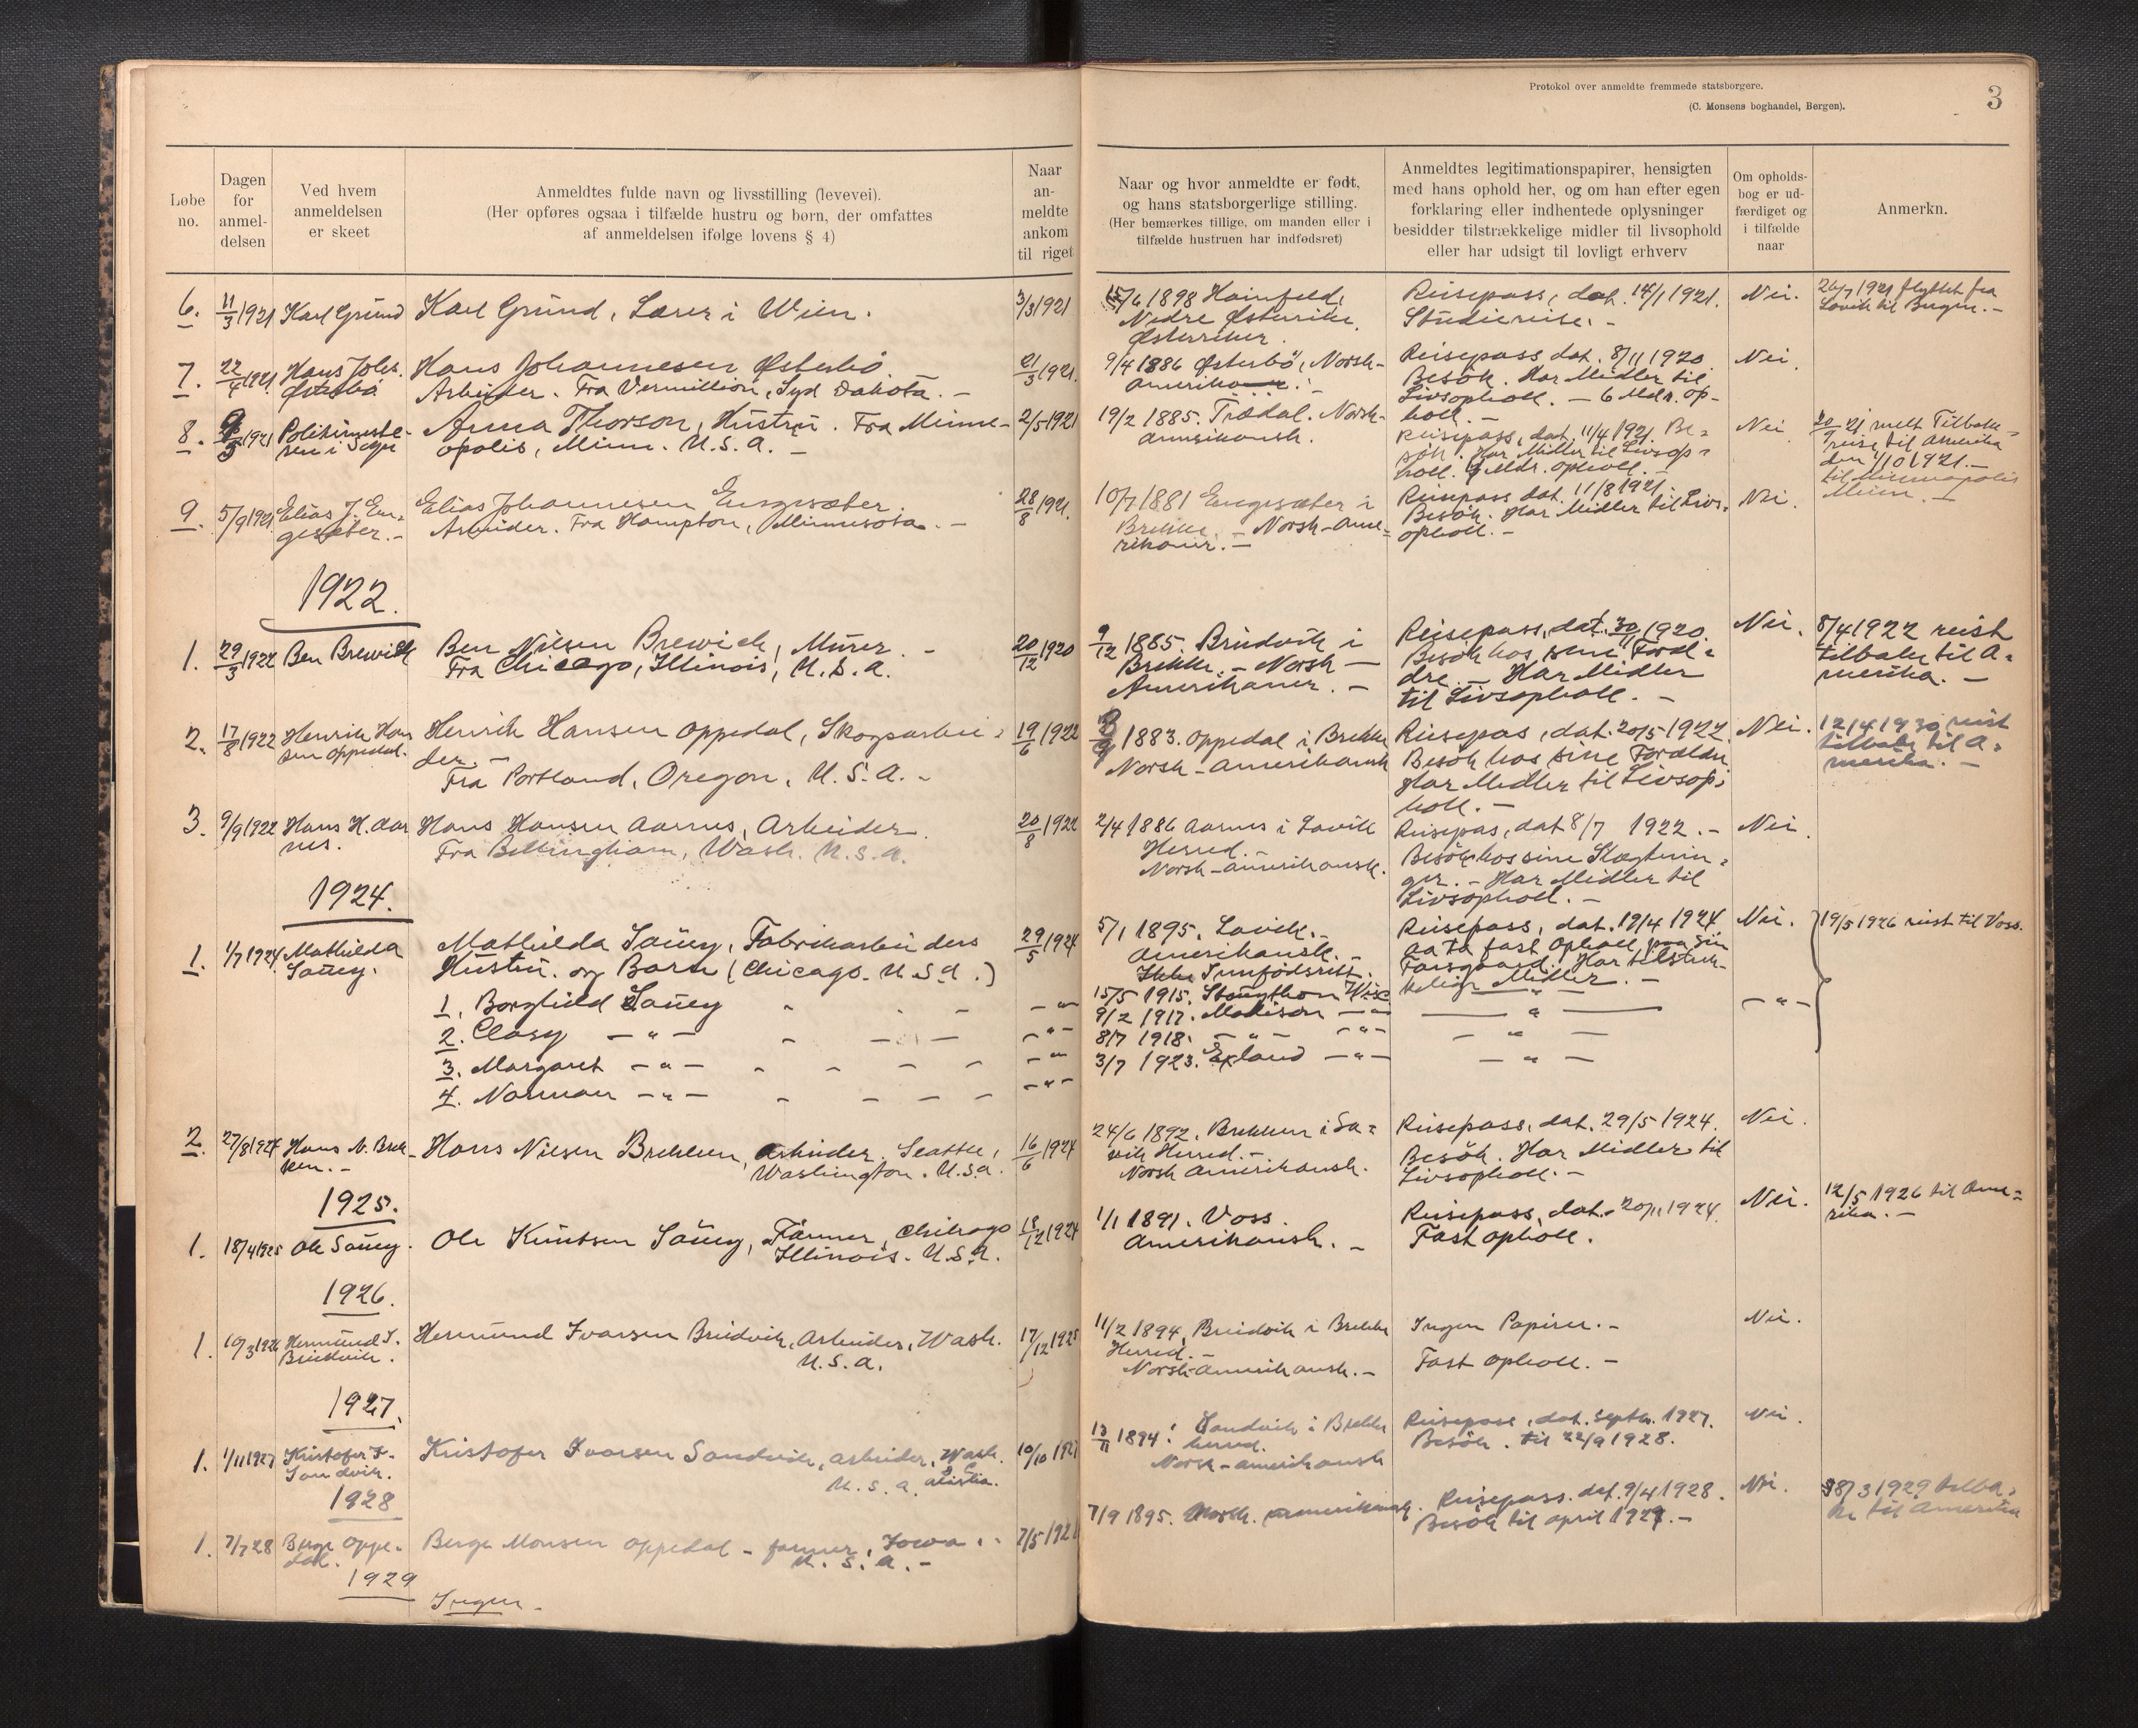 Protokol over anmeldte fremmede statsborgere.
(C. Monsens boghandel, Bergen).
3
Løbe no.
Dagen for anmel-delsen
Ved hvem anmeldelsen er skeet
Anmeldtes fulde navn og livsstilling (levevei).
(Her opføres ogsaa i tilfælde hustru og børn, der omfattes
af anmeldelsen ifølge lovens § 4)
Naar an-meldte ankom til riget
Naar og hvor anmeldte er født,
og hans statsborgerlige stilling.
(Her bemærkes tillige, om manden eller i
tilfælde hustruen har indfødsret)
Anmeldtes legitimationspapirer, hensigten
med hans ophold her, og om han efter egen
forklaring eller indhentede oplysninger
besidder tilstrækkelige midler til livsophold
eller har udsigt til lovligt erhverv
Om opholds-bog er ud-færdiget og i tilfælde naar
Anmerkn.
6. 11/3 1921 Karl Gründ Karl Gründ, Lærer i Wien. 3/3 1921
15/6 1898 Hainfeld, Reisepass, dat. 14/1 1921. Nei. 26/7 1921 flyttet fra
Nedre Østerrike. Studiereise. - Lavik til Bergen. -
Østerriker.
7. 22/4 1921 Hans Johs. Hans Johannesen Østerbö 21/3 1921.
Østerbö Arbeider. Fra Vermillion, Syd Dakota. -
9/4 1886 Østerbö, Norsk- Reisepass dat. 8/11 1920. Nei
amerikaner. Besök. Har Midler til
Livsopholl. - 6 Mdr. op-
holl. -
8. 1921 Politimeste- Anna Thorson, Hustru. Fra Minne- 2/5 1921
ren i Sogn opolis, Minn. U.S.A. -
19/2 1885. Trædal. Norsk- Reisepass, dat. 11/4 1921. Be- Nei. 20/9 21 melt Tilbake-
amerikansk. sök. Har Midler til Livsop- reise til Amerika
holl. Mdr. opholl. - den 1/10 1921. -
til Minneapolis
Minn.
9. 5/9 1921 Elias J. En- Elias Johannesen Engesæter 28/8 1921.
gesæter. - Arbeider. Fra Hampton, Minnesota. -
10/7 1881 Engesæter i Reisepass dat. 11/8 1921. Nei.
Brekke. - Norsk-Ame- Besök. Har Midler til Livs-
rikaner. - opholl. -
1922.
1. 29/3 1922 Ben Brewick Ben Nilsen Brewick, Murer. - 20/12 1920
Fra Chicago, Illinois, U.S.A.
9/12 1885. Breidvik i Reisepass, dat. 30/11 1920. Nei. 8/4 1922 reist
Brekke. - Norsk - Besök hos sine Foræl- tilbake til A-
Amerikaner. - dre. - Har Midler merika. -
til Livsopholl. -
2. 17/8 1922 Henrik Han Henrik Hansen Oppedal, Skogsarbei- 19/6 1922
sen Oppedal. der. -
Fra Portland, Oregon, U.S.A. -
1883. Oppedal i Brekke Reisepas, dat. 20/5 1922 Nei. 12/4 1930 reist
Norsk-amerikansk Besök hos sine Forældre tilbake til A-
Har Midler til Livsop- merika. -
holl. -
3. 9/9 1922 Hans H. Aar Hans Hansen Aarnes, Arbeider. 20/8 1922
nes. Fra Bellingham, Wash. U.S.A.
2/4 1886 Aarnes i Lavik Reisepas, dat 8/7 1922. - Nei.
Herred. - Besök hos sine Slægtnin-
Norsk-amerikansk. ger. - Har Midler til
Livsopholl. -
1924.
1. 1/7 1924 Mathilda Mathilda Saüey, Fabrikarbeiders 29/5 1924
Saüey. Hustru. og Barn (Chicago. U.S.A.)
5/1 1895. Lavik. - Reisepass, dat. 19/4 1924. Nei. 19/5 1926 reist til Voss.
Amerikansk. - aa ta fast opholl paa sin
Ikke Innfödsrett. Farsgaard. Har tilstrek-
kelige Midler. -
1. Borghild Saüey - " - 15/5 1915. Stoughton Wisc
2. Clasy - " - - " - 9/2 1917. Madison - " -
3. Margaret - " - - " - 8/7 1918. - " - - " -
4. Norman - " - - " - 3/7 1923. Exland - " -
2. 27/8 1924 Hans N. Brek- Hans Nilsen Brekken, arbeider. Seattle, 16/6 1924
ken. - Washington. U.S.A.
24/6 1892. Brekken i La- Reisepass, dat. 29/5 1924. Nei.
vik Herred. - Besök. Har Midler til
Norsk Amerikansk. Livsopholl. -
1925.
1. 18/4 1925 Ole Saüey. Ole Knutsen Saüey, Farmer, Chicago 18/12 1924
Illinois. U.S.A.
1/1 1891. Voss. Reisepass, dat. 20/11 1924. Nei. 12/5 1926 til Ame-
Amerikansk. - Fast opholl. rika. -
1926.
1. 10/3 1926 Hermund I. Hermund Ivarsen Breidvik, Arbeider, Wash. 17/12 1925
Breidvik. U.S.A.
11/2 1894, Breidvik i Brekke Ingen Papirer. - Nei.
Herred. - Fast opholl. -
Norsk-amerikansk. -
1927.
1. 1/11 1927 Kristofer I. Kristofer Ivarsen Sandvik, arbeider, Wash. 10/10 1927
Sandvik. U.S.A.
13/11 1894. Sandvik i Brekke Reisepass, dat. septbr. 1927. Nei.
herred. Besök. til 22/9 1928.
Norsk-amerikansk
1928
1. 7/7 28 Berge Oppe- Berge Monsen Oppedal - farmer, Iowa, - 7/5 1928
dal. U.S.A. -
7/9 1895. Norsk. amerikansk. Reisepass. dat. 9/4 1928. Nei. 8/3 1929 tilba-
Besök til april 1929. - ke til Amerika
1929
Ingen -